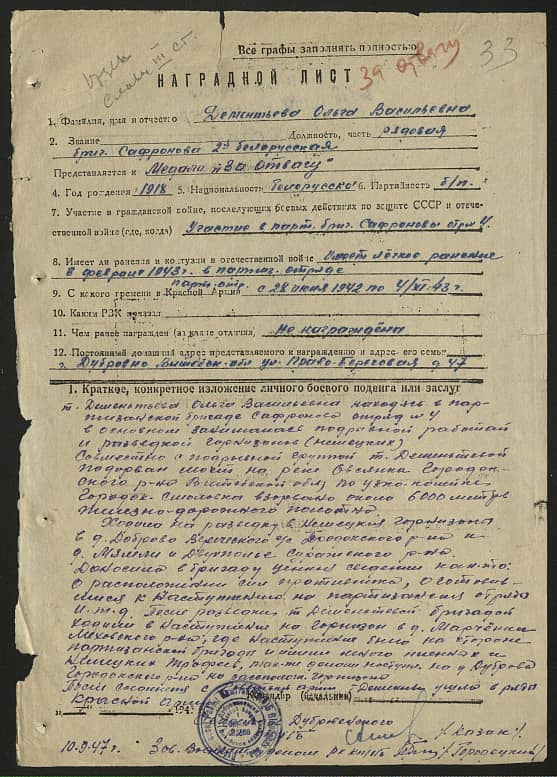 Все графы заполнять полностью
33
НАГРАДНОЙ ЛИСТ
За отвагу
1. Фамилия, имя и отчество Дементьева Ольга Васильевна
2. Звание Должность, часть рядовая
бриг. Сафронова 2й белорусская
Представляется к Медали "За Отвагу"
4. Год рождения 1918 5. Национальность белорусска 6. Партийность б/п.
7. Участие в гражданской войне, последующих боевых действиях по защите СССР и отече-
ственной войне (где, когда) Участие в парт. бриг. Сафронова отряд 4
8. Имеет ли ранения и контузии в отечественной войне Имеет лёгкое ранение
в феврале 1943г. в партиз. отряде
парт. отр.
9. С какого времени в Красной Армии с 28 июня 1942 по 4/XI-43 г.
10. Каким РВК призван
11. Чем ранее награжден (за какие отличия) не награждена
12. Постоянный домашний адрес представляемого к награждению и адрес его семьи
г. Дубровно Витебск. обл ул. Право-Береговая д. 47
1. Краткое, конкретное изложение личного боевого подвига или заслуг
т. Дементьева Ольга Васильевна находясь в пар-
тизанской бригаде Сафронова отряд №4
в основном занималась подрывной работой
и разведкой гарнизонов (немецких)
Совместно с подрывной группой т. Дементьевой
подорван мост на реке Овсянка Городок-
ского р-на Витебской обл по узко-колейке
Городок-Смоловка взорвано около 6000 метров
железно-дорожного полотна.
Ходила на разведку в немецкие гарнизоны
в д. Дуброво Городокского р-на и
д. Мишли и Суражского р-на.
Доносила в бригаду ценные сведения как-то:
о расположении сил противника, о готовив-
шихся к наступлению на партизанские отряды
и.т.д. После разведки т Дементьевой бригадой
ходили в наступление на гарнизон в д. Мартенки
Меховского р-на, где наступление было на стороне
партизанской бригады и отбили много пленных и
немецких трофеев, так-же делали наступл. на д. Дуброво
Городокского р-на
После соединения с армией Дементьева ушла в ряды
Красной Армии
Командир (начальник)
194
Дубровенского
/Казак/
10.9.47г. Зав. Военным отделом РК КП(б)Б /Городецкий/